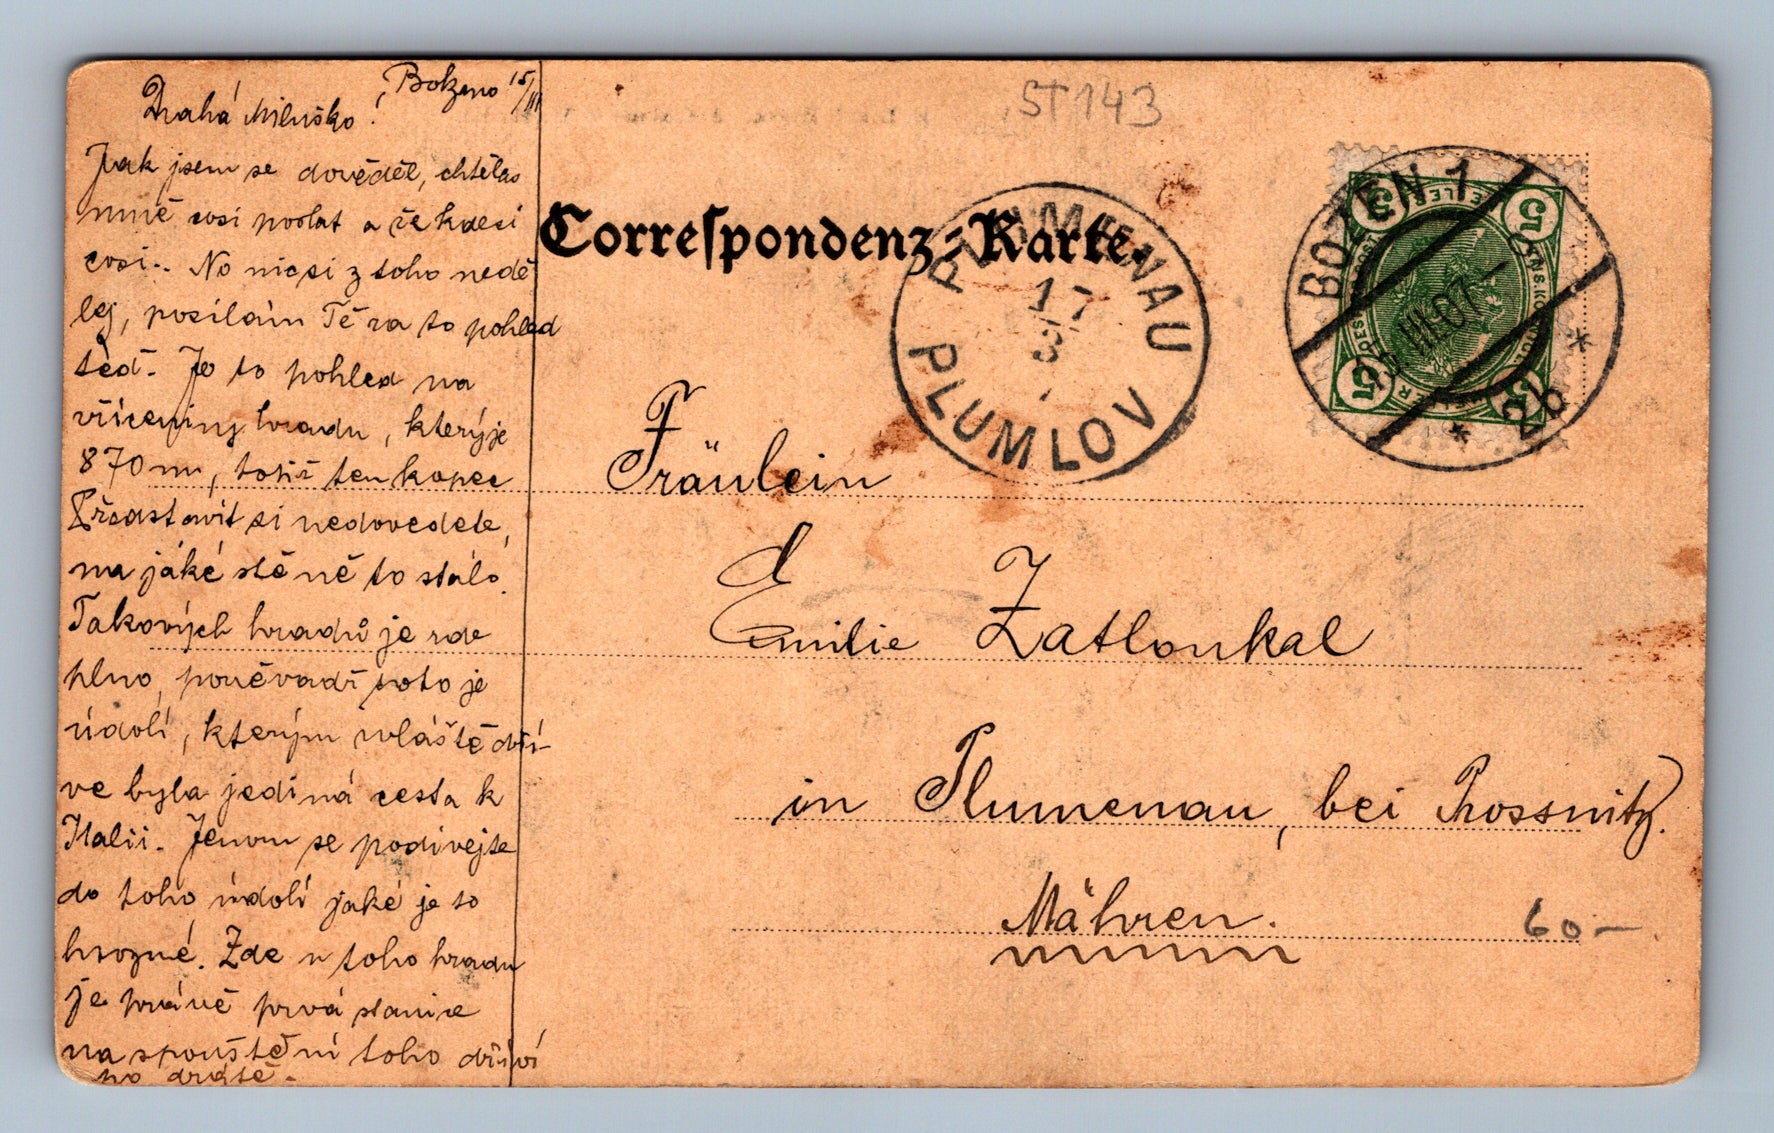 Bolzano 15/III
Drahá Miluško!
Jak jsem se dověděl, chtělas
mně cosi poslat a že kdesi
cosi.. No nicsi z toho nedě
lej, posílám Tě za to pohled
teď. Je to pohled na
zříceniny hradu, který je
870 m, totiž ten kopec
Představit si nedovedete,
na jáké stě ně to stálo.
Takových hradů je zde
plno, poněvadž toto je
údolí, kterým zvláště dří-
ve byla jediná cesta k
Italii. Jenom se podívejte
do toho údolí jaké je to
hrozné. Zde u toho hradu
je právě prvá stanice
na spouštění toho dříví
po drátě.
ST143
Correspondenz-Karte.
PLUMENAU
17
3
PLUMLOV
BOZEN 1
15 III 07
2b
5 5 5 5
Fräulein
Emilie Zatloukal
in Plumenau, bei Prossnitz.
Mähren.
60-